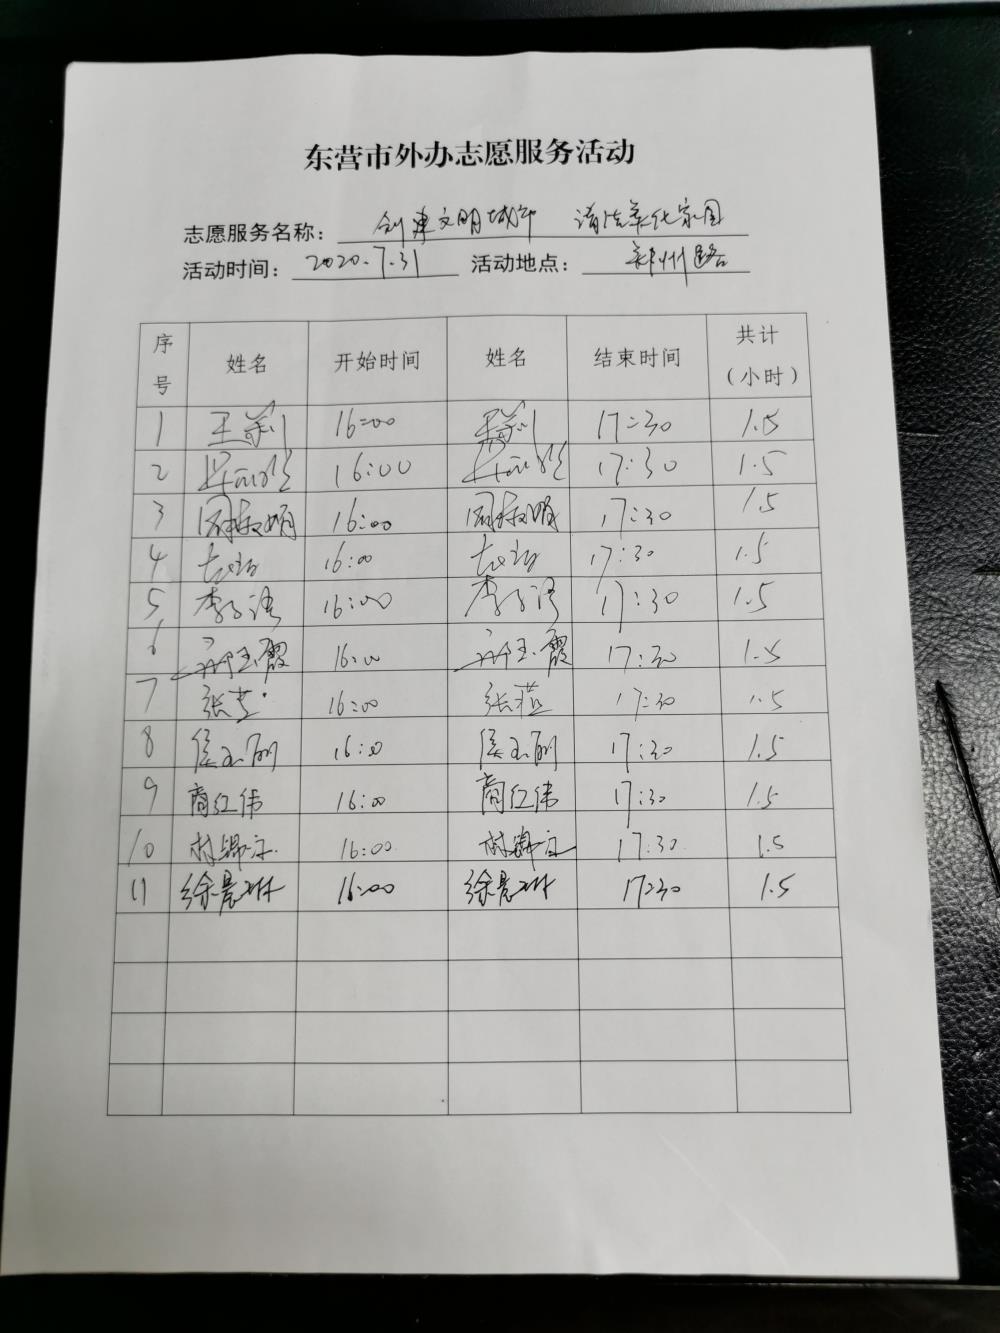 东营市外办志愿服务活动
志愿服务名称：创建文明城市 清洁美化家园
活动时间：2020.7.31 活动地点：郑州路
序号 姓名 开始时间 姓名 结束时间 共计（小时）
1 王莉 16:00 王莉 17:30 1.5
2 16:00 17:30 1.5
3 周淑娟 16:00 周淑娟 17:30 1.5
4 16:00 17:30 1.5
5 李 16:00 李 17:30 1.5
6 玉霞 16:00 玉霞 17:30 1.5
7 张 16:00 张 17:30 1.5
8 侯玉刚 16:00 侯玉刚 17:30 1.5
9 商红伟 16:00 商红伟 17:30 1.5
10 16:00 17:30 1.5
11 徐晨琳 16:00 徐晨琳 17:30 1.5